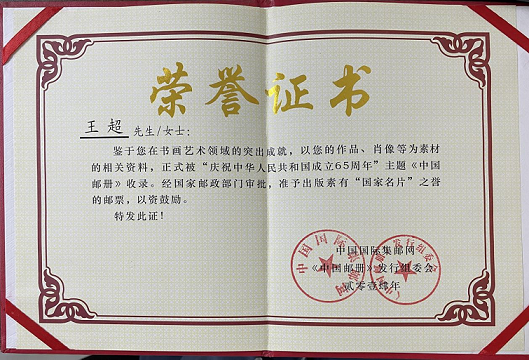 荣誉证书
王超 先生/女士:
鉴于您在书画艺术领域的突出成就，以您的作品、肖像等为素材
的相关资料，正式被“庆祝中华人民共和国成立65周年”主题《中国
邮册》收录。经国家邮政部门审批，准予出版素有“国家名片”之誉
的邮票，以资鼓励。
特发此证！
中国国际集邮网
《中国邮册》发行组委会
贰零壹肆年
中国国际集邮网
《中国邮册》发行组委会